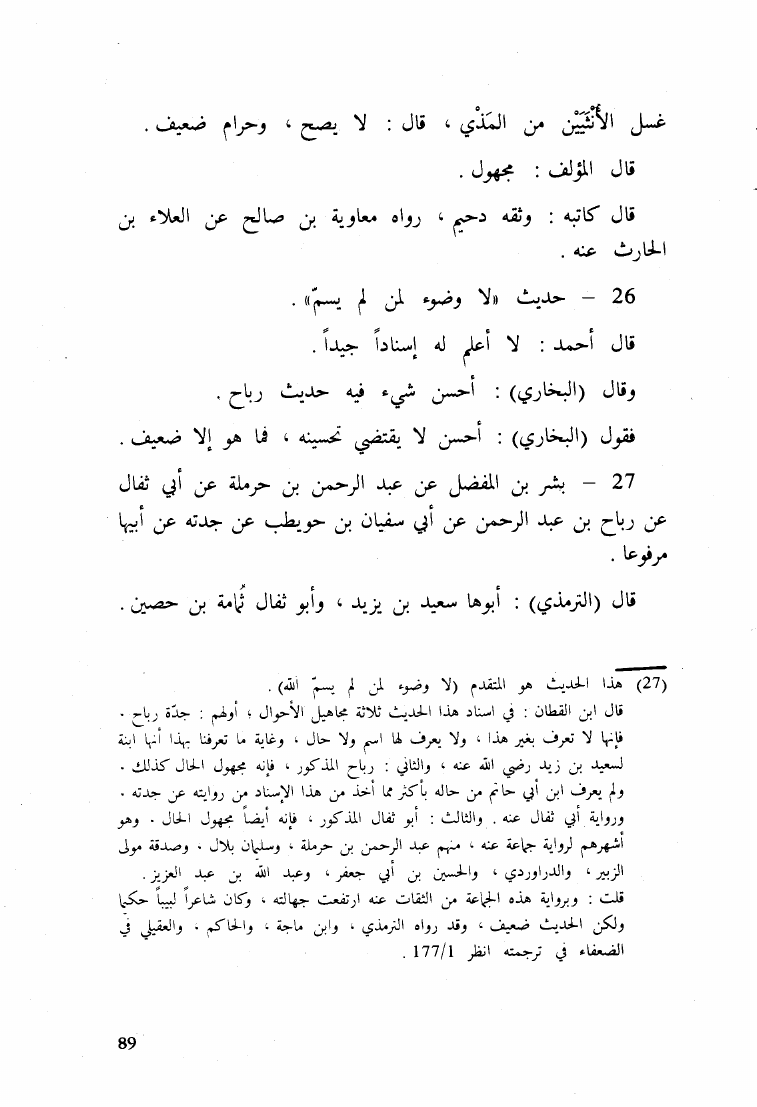 غسل الأُنْثَيَيْن من المَذْي ، قال : لا يصح ، وحرام ضعيف .
قال المؤلف : مجهول .
قال كاتبه : وثقه دحيم ، رواه معاوية بن صالح عن العلاء بن
الحارث عنه .
26 – حديث «لا وضوء لمن لم يسمّ» .
قال أحمد : لا أعلم له إسناداً جيداً .
وقال (البخاري) : أحسن شيء فيه حديث رباح .
فقول (البخاري) : أحسن لا يقتضي تحسينه ، فما هو إلا ضعيف .
27 – بشر بن المفضل عن عبد الرحمن بن حرملة عن أبي ثفال
عن رباح بن عبد الرحمن عن أبي سفيان بن حويطب عن جدته عن أبيها
مرفوعا .
قال (الترمذي) : أبوها سعيد بن يزيد ، وأبو ثفال ثُمامة بن حصين .
(27) هذا الحديث هو المتقدم (لا وضوء لمن لم يسمّ الله) .
قال ابن القطان : في اسناد هذا الحديث ثلاثة مجاهيل الأحوال ؛ أولهم : جدّة رباح .
فإنها لا تعرف بغير هذا ، ولا يعرف لها اسم ولا حال ، وغاية ما تعرفنا بهذا أنها ابنة
لسعيد بن زيد رضي الله عنه ، والثاني : رباح المذكور ، فإنه مجهول الحال كذلك .
ولم يعرف ابن أبي حاتم من حاله بأكثر مما أخذ من هذا الإسناد من روايته عن جدته .
ورواية أبي ثفال عنه . والثالث : أبو ثفال المذكور ، فإنه أيضاً مجهول الحال . وهو
أشهرهم لرواية جماعة عنه ، منهم عبد الرحمن بن حرملة ، وسليمان بلال . وصدقة مولى
الزبير ، والدراوردي ، والحسين بن أبي جعفر ، وعبد الله بن عبد العزيز .
قلت : وبرواية هذه الجماعة من الثقات عنه ارتفعت جهالته ، وكان شاعراً لبيباً حكيما
ولكن الحديث ضعيف ، وقد رواه الترمذي ، وابن ماجة ، والحاكم ، والعقيلي في
الضعفاء في ترجمته انظر 177/1 .
89